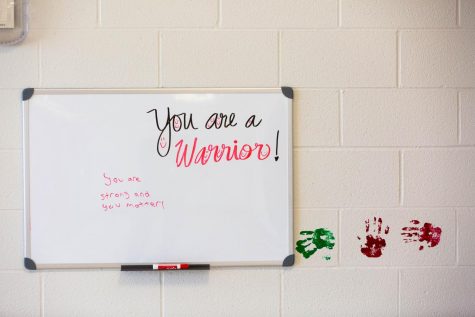 You are a
Warrior!
You are
strong and
you matter!